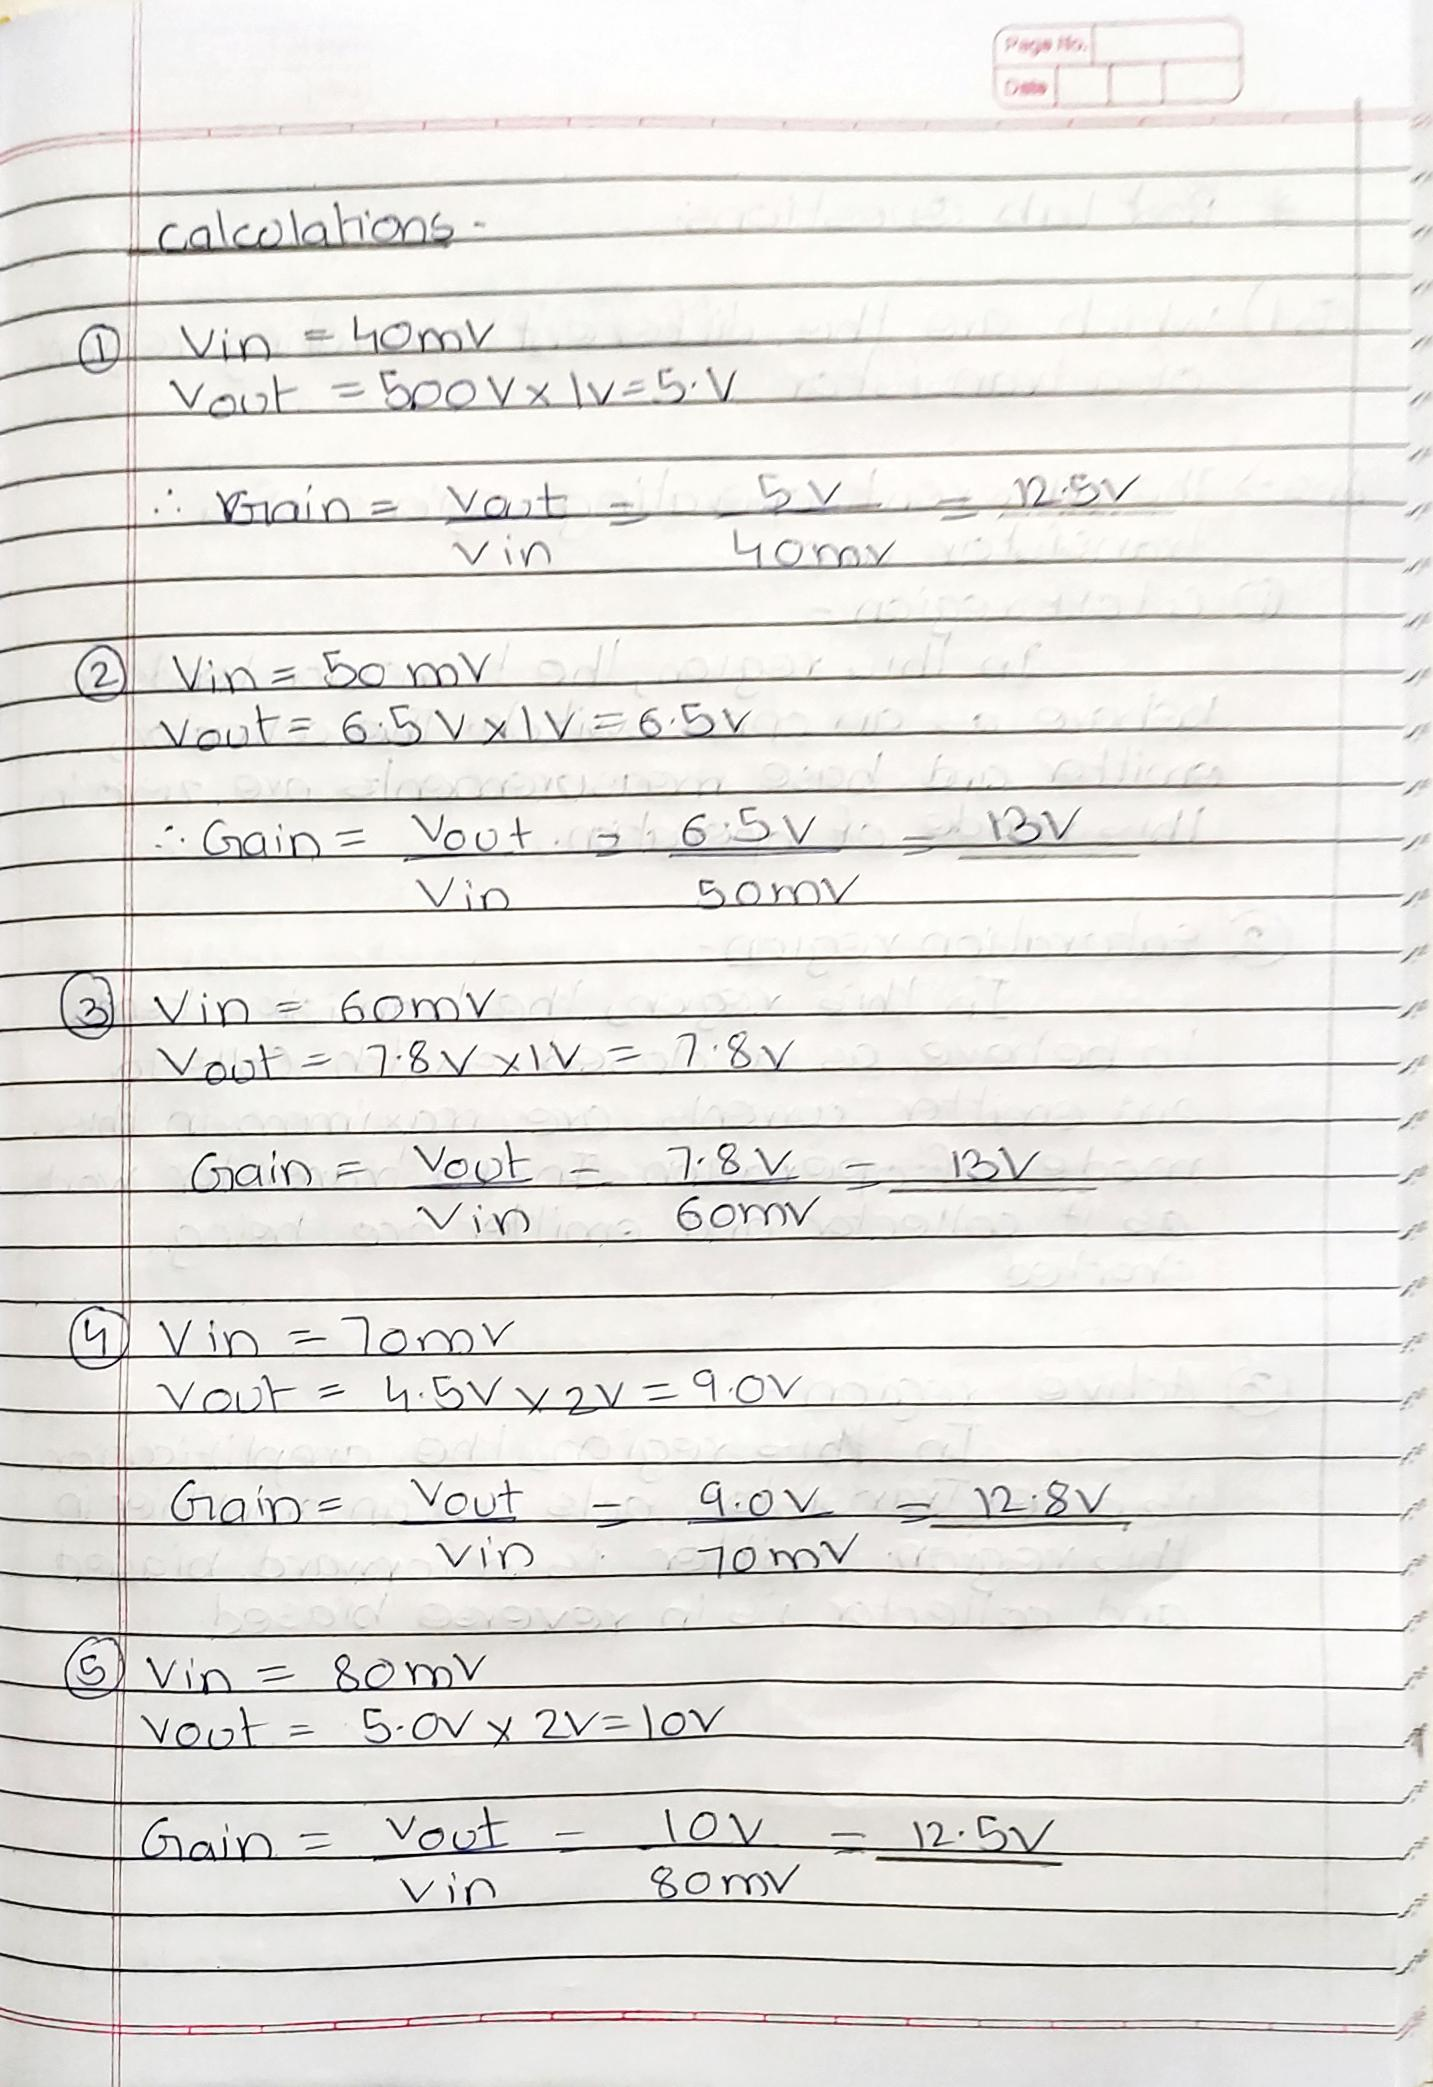 Page No.
Date
calculations.
① Vin = 40mV
Vout = 500V x 1V = 5.V
∴ Gain = Vout / Vin = 5V / 40mV = 12.5V
② Vin = 50 mV
Vout = 6.5 V x 1V = 6.5V
∴ Gain = Vout / Vin = 6.5V / 50mV = 13V
③ Vin = 60mV
Vout = 7.8V x 1V = 7.8V
Gain = Vout / Vin = 7.8V / 60mV = 13V
④ Vin = 70mV
Vout = 4.5V x 2V = 9.0V
Gain = Vout / Vin = 9.0V / 70mV = 12.8V
⑤ Vin = 80mV
Vout = 5.0V x 2V = 10V
Gain = Vout / Vin = 10V / 80mV = 12.5V